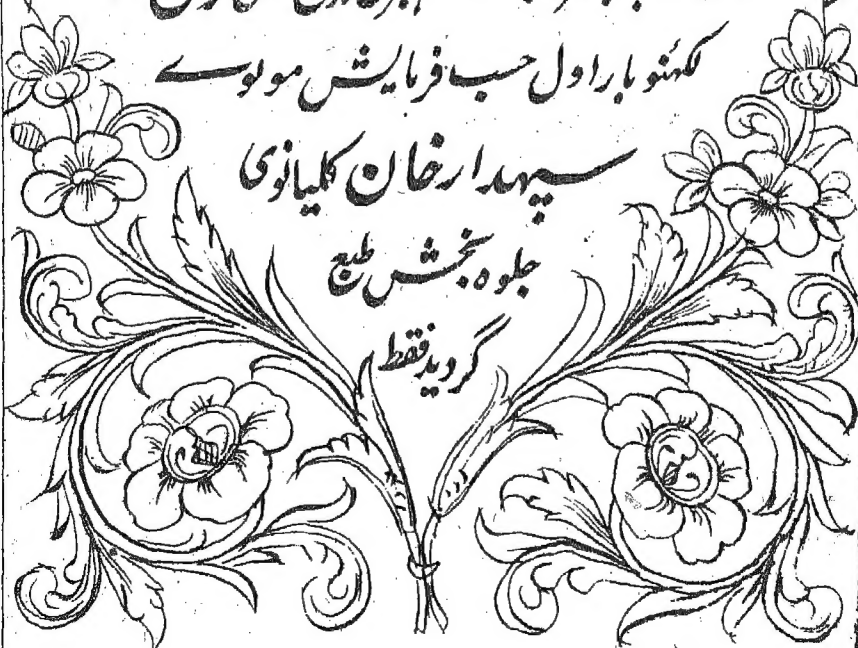 لکهنو بار اول حسب فرمایش مولوے
سپهدار خان کلیانوی
جلوه بخش طبع
گردید فقط